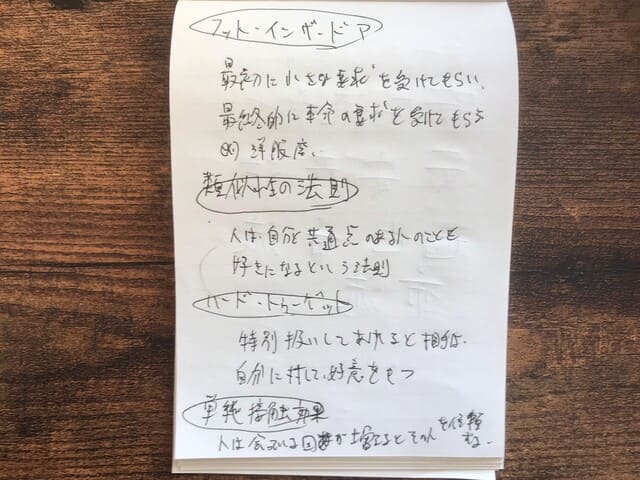 フット・イン・ザ・ドア
最初に小さな要求を受けてもらい、
最終的に本命の要求を受けてもらう
例 洋服店、
類似性の法則
人は自分と共通点のある人のことを
好きになるという法則
ハード・トゥー・ゲット
特別扱いしてあげると相手は、
自分に対して、好意をもつ
単純接触効果
人は会っている回数が増えるとその人を信頼する。